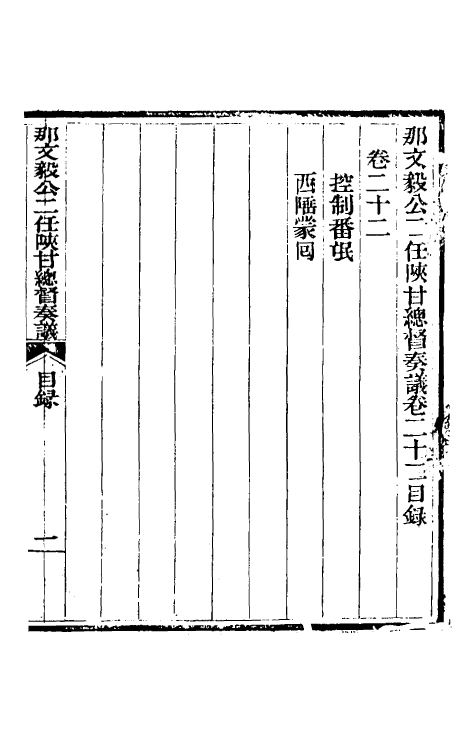 那文毅公二任陜甘總督奏議卷二十二目録
卷二十二
控制番氓
西陲蒙回
那文毅公二任陜甘總督奏議
目録
二